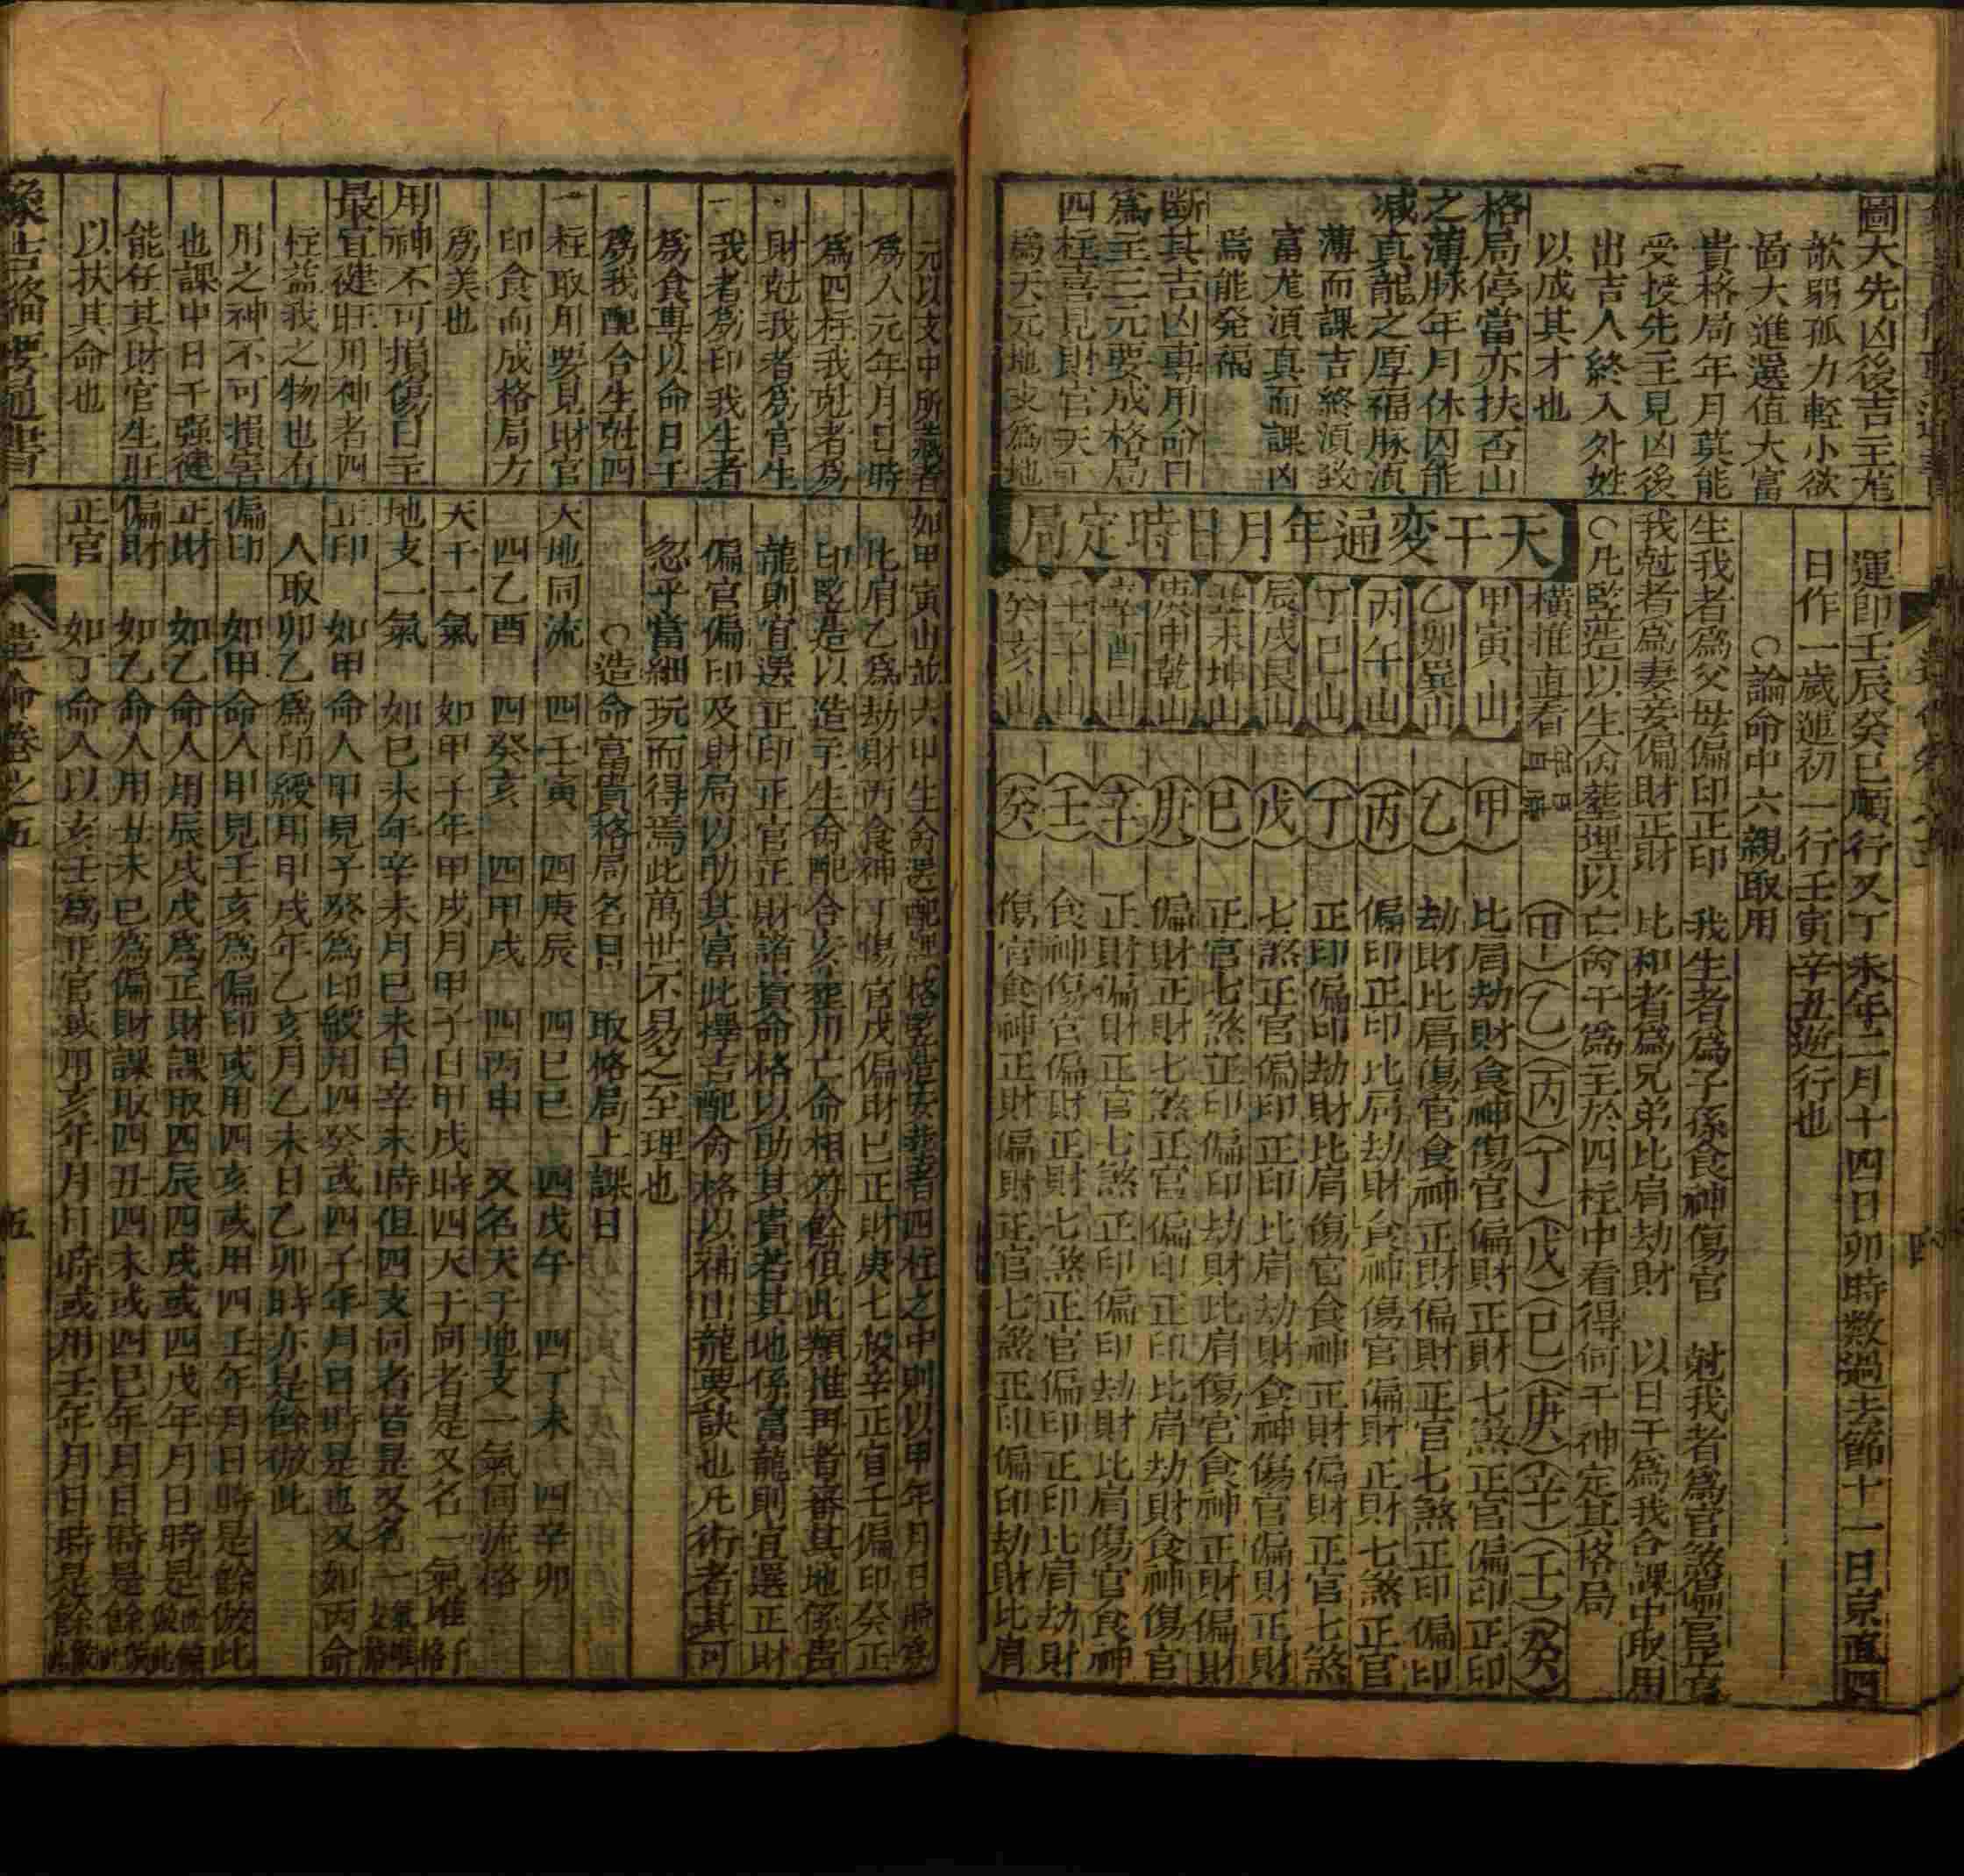 圖大先凶後吉主尨
歒弱孤力輕小欲
啚大進選值大富
貴格局年月莫能
受授先主見凶後
出吉人終入外姓
以成其才也
格局停當亦扶否山
之薄脉年月休囚能
减真龍之厚福脉湏
薄而課吉終湏致
富尨湏真而課凶
為能発福
斷其吉凶專用命日
為主三元要成格局
四柱喜見財官天干
為天元地支為地
運即壬辰癸巳順行又丁未年二月十四日卯時数過去節十一日京直四
日作一歲運初一行壬寅辛丑逆行也
○論命中六親取用
生我者為父母偏印正印 我生者為子孫食神傷官 尅我者為官煞偏官正官
我尅者為妻妾偏財正財 比和者為兄弟比肩劫財 以日干為我合課中取用
○凡豎造以生命塟埋以亡命干為主於四柱中看得何干神定其格局
天干変通年月日時定局
橫推直看
(甲)(乙)(丙)(丁)(戊)(巳)(庚)(辛)(壬)(癸)
甲寅山 (甲) 比肩劫財食神傷官偏財正財七煞正官偏印正印
乙卯巽山 (乙) 劫財比肩傷官食神正財偏財正官七煞正印偏印
丙午山 (丙) 偏印正印比肩劫財食神傷官偏財正財七煞正官
丁巳山 (丁) 正印偏印劫財比肩傷官食神正財偏財正官七煞
辰戌艮山 (戊) 七煞正官偏印正印比肩劫財食神傷官偏財正財
丑未坤山 (巳) 正官七煞正印偏印劫財比肩傷官食神正財偏財
庚申乾山 (庚) 偏財正財七煞正官偏印正印比肩劫財食神傷官
辛酉山 (辛) 正財偏財正官七煞正印偏印劫財比肩傷官食神
壬子山 (壬) 食神傷官偏財正財七煞正官偏印正印比肩劫財
癸亥山 (癸) 傷官食神正財偏財正官七煞正印偏印劫財比肩
元以支中所藏者
為人元年月日時
為四柱我尅者為
財尅我者為官生
一我者為印我生者
為食專以命日干
為我配合生尅四
一柱取用要見財官
印食而成格局方
為美也
用神不可損傷日主
最宜徤旺用神者四
柱益我之物也有
用之神不可損害
也課中日干强徤
能任其財官生旺
以扶其命也
如甲寅山並六甲生命選配課格豎造安葬者四柱之中則以甲年月日時為
比肩乙為劫財丙食神丁傷官戊偏財已正財庚七殺辛正官壬偏印癸正
印豎造以造主生命配合亥葬用亡命相符餘俱此類推再者審其地係貴
龍則宜選正印正官正財諸貴命格以助其貴若其地係富龍則宜選正財
偏官偏印及財局以助其富此擇吉配命格以補山龍要訣也凡術者其可
忽乎當細玩而得焉此萬世不易之至理也
○造命富貴格局名目 取格局上課日
天地同流 四壬寅 四庚辰 四巳巳 四戊午 四丁未 四辛卯
四乙酉 四癸亥 四甲戌 四丙申 又名天干地支一氣同流格
天干一氣 如甲子年甲戌月甲子日甲戌時四天干同者是又名一氣堆干格
地支一氣 如巳未年辛未月巳未日辛未時但四支同者皆是又名一氣堆支格
正印 如甲命人甲見子癸為印綬用四癸或四子年月日時是也又如丙命
人取卯乙為印綬用甲戌年乙亥月乙未日乙卯時亦是餘倣此
偏印 如甲命人甲見壬亥為偏印或用四亥或用四壬年月日時是餘倣此
正財 如乙命人用辰戌戊為正財課取四辰四戌或四戊年月日時是餘倣此
偏財 如乙命人用丑未巳為偏財課取四丑四未或四巳年月日時是餘倣此
正官 如丁命人以亥壬為正官或用亥年月日時或用壬年月日時是餘倣此
象吉備要通書 造命卷之五 五